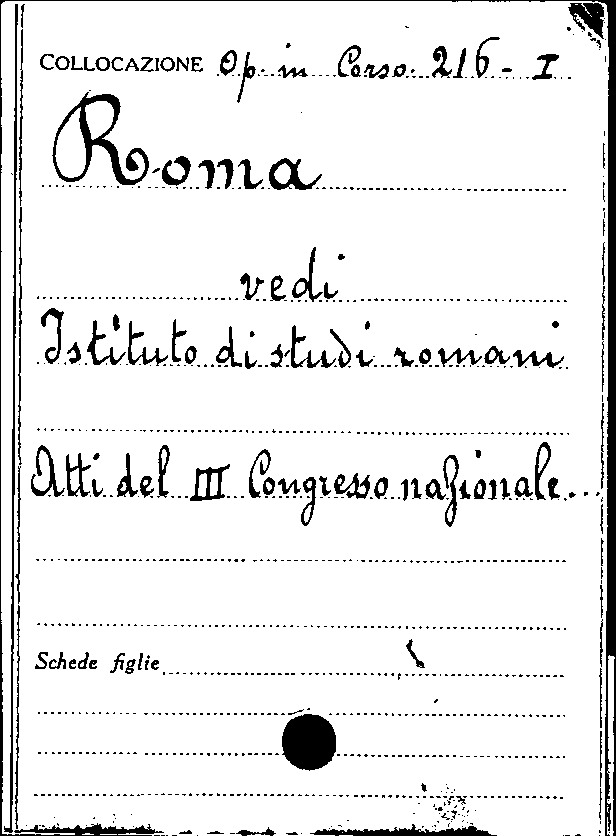 COLLOCAZIONE Op. in Corso. 216 - I
Roma
vedi
Istituto di studi romani
Atti del III Congresso nazionale...
Schede figlie